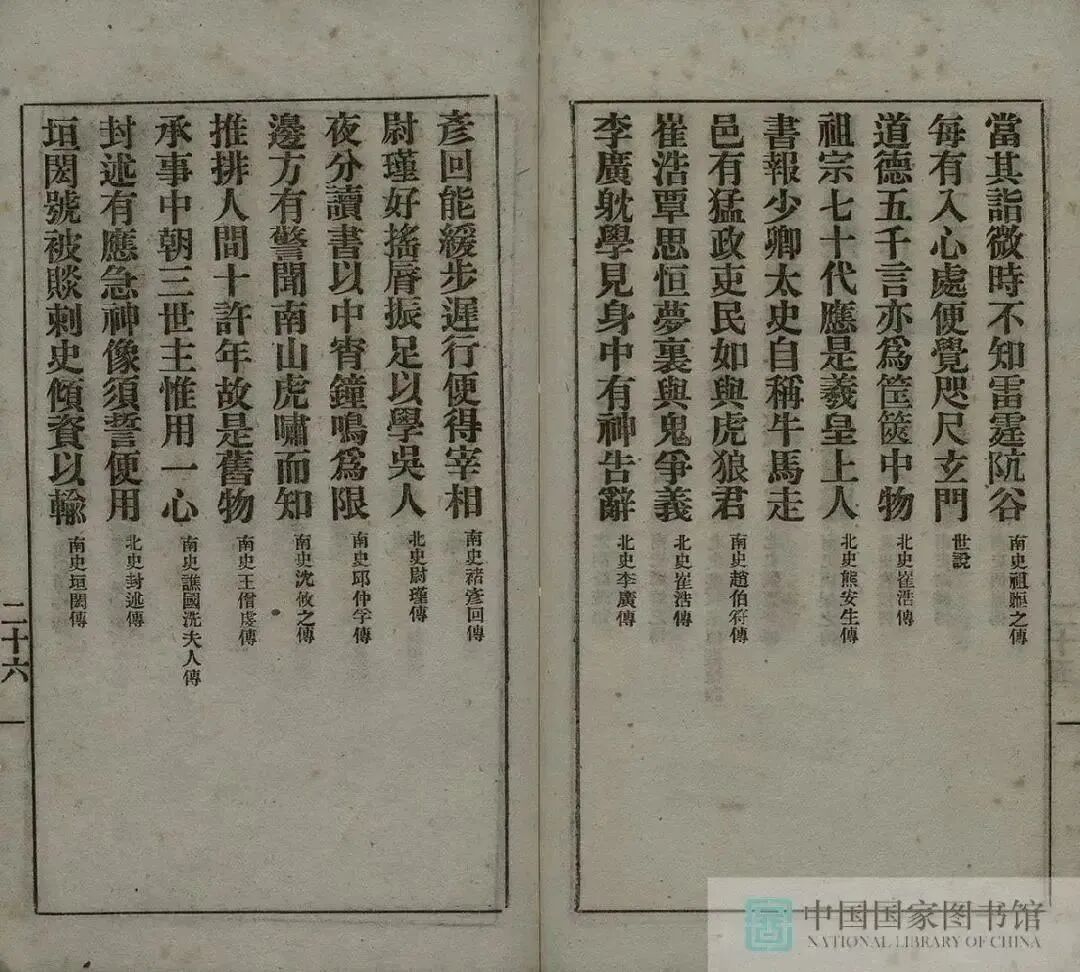 當其詣微時不知雷霆阬谷 南史祖暅之傳
每有入心處便覺咫尺玄門 世説
道德五千言亦爲筐篋中物 北史崔浩傳
祖宗七十代應是羲皇上人 北史熊安生傳
書報少卿太史自稱牛馬走
邑有猛政吏民如與虎狼君 南史趙伯符傳
崔浩覃思恒夢裏與鬼爭義 北史崔浩傳
李廣躭學見身中有神告辭 北史李廣傳
彥回能緩步遲行便得宰相 南史褚彥回傳
尉瑾好搖脣振足以學吳人 北史尉瑾傳
夜分讀書以中宵鐘鳴爲限 南史邱仲孚傳
邊方有警聞南山虎嘯而知 南史沈攸之傳
推排人間十許年故是舊物 南史王僧虔傳
承事中朝三世主惟用一心 南史譙國洗夫人傳
封述有應急神像須誓便用 北史封述傳
垣閎號被賧刺史傾資以輸 南史垣閎傳
二十六
中国国家图书馆
NATIONAL LIBRARY OF CHINA